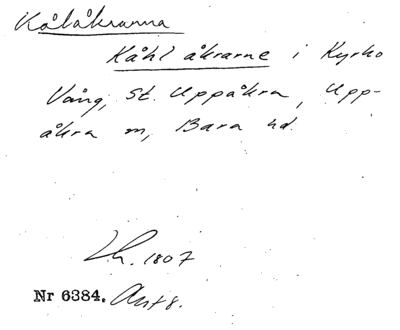 Kålåkrarna
Kåhl åkrarne i Kyrko
Vång, St. Uppåkra, Upp-
åkra sn, Bara hd.
Lh. 1807
Nr 6384. Akt 8.